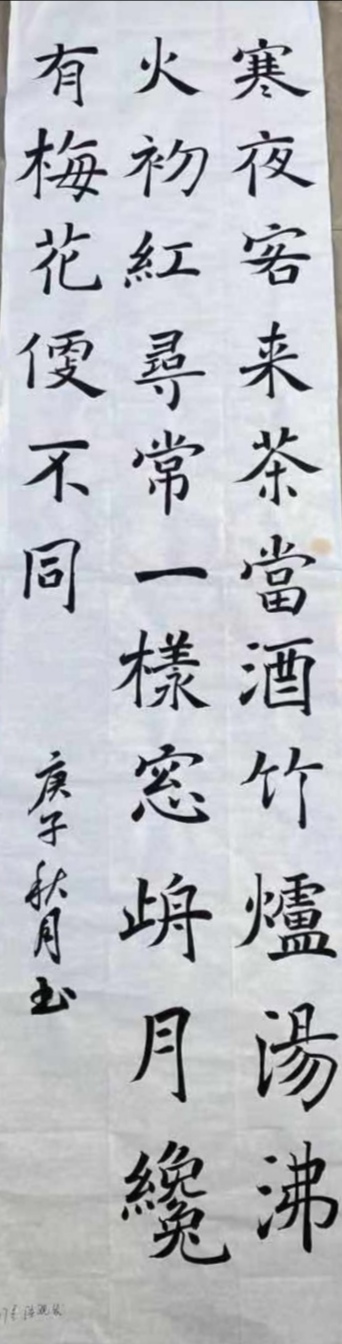 寒夜客来茶當酒竹爐湯沸
火初紅尋常一樣窓歬月纔
有梅花便不同
庚子秋月玉